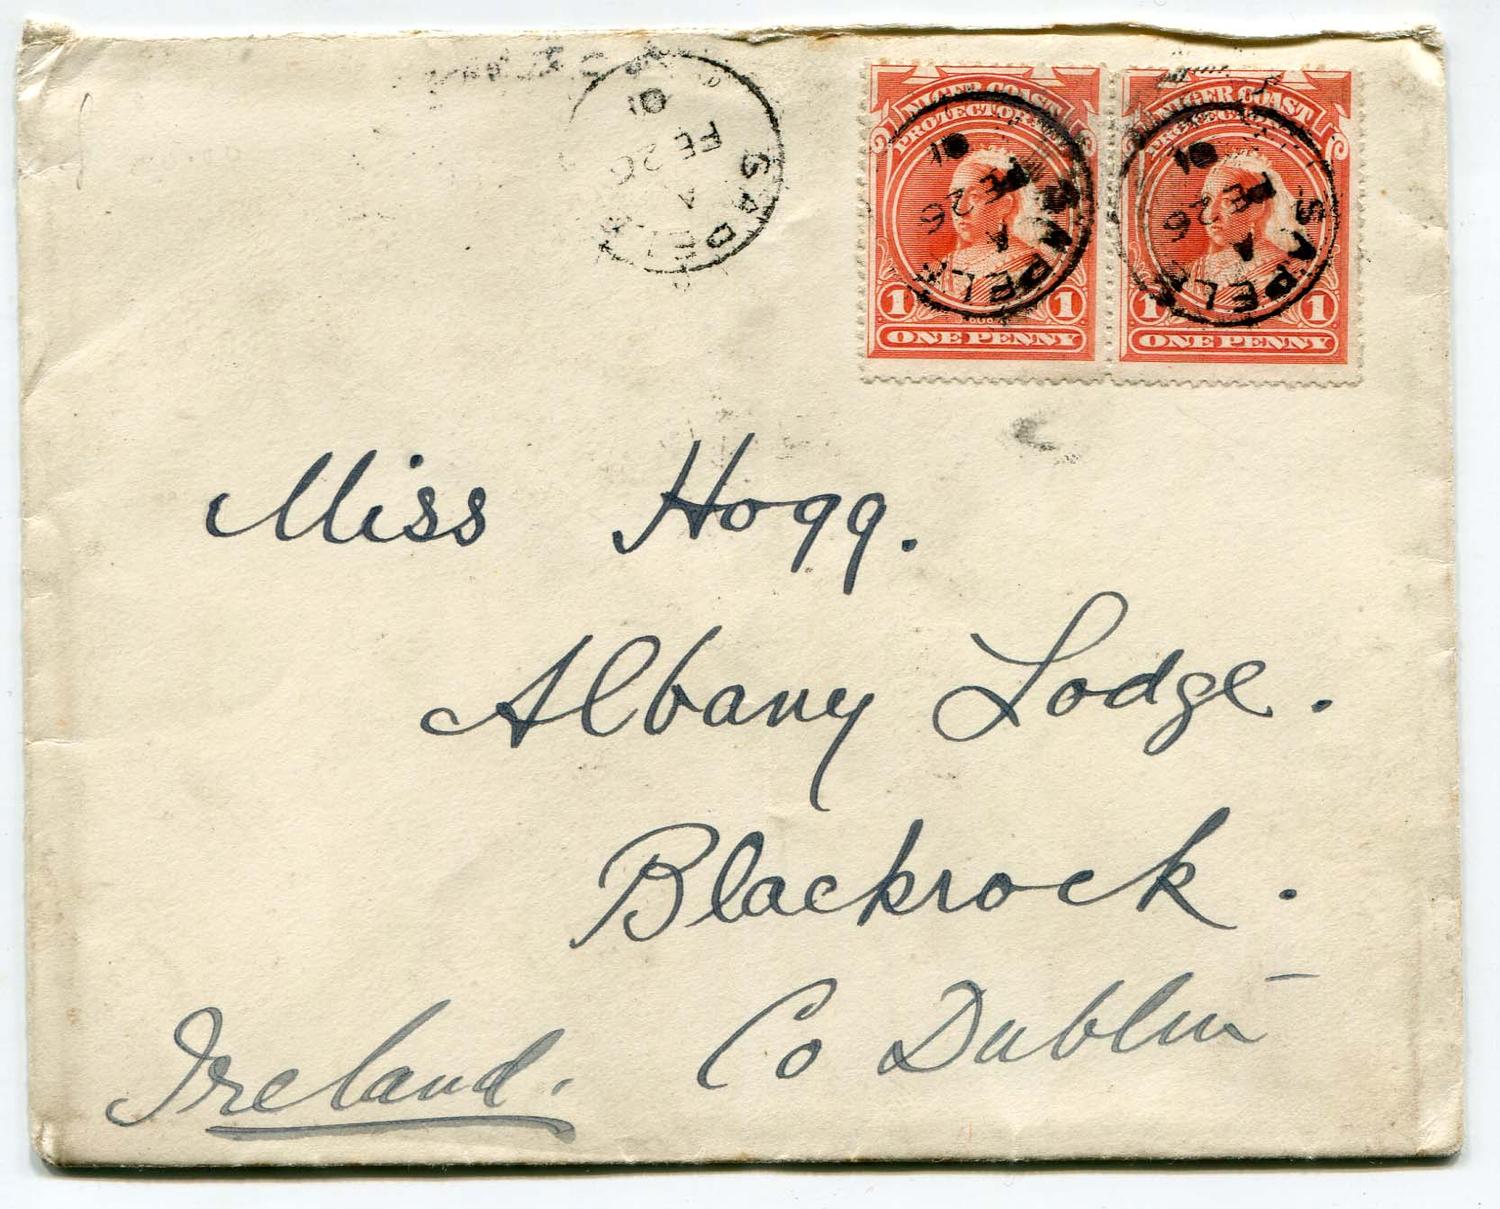 SAPELE
A
FE 26
01
NIGER COAST
PROTECTORATE
1 1
ONE PENNY
SAPELE
A
FE 26
01
NIGER COAST
PROTECTORATE
1 1
ONE PENNY
SAPELE
A
FE 26
01
Miss Hogg.
Albany Lodge.
Blackrock.
Co Dublin
Ireland.